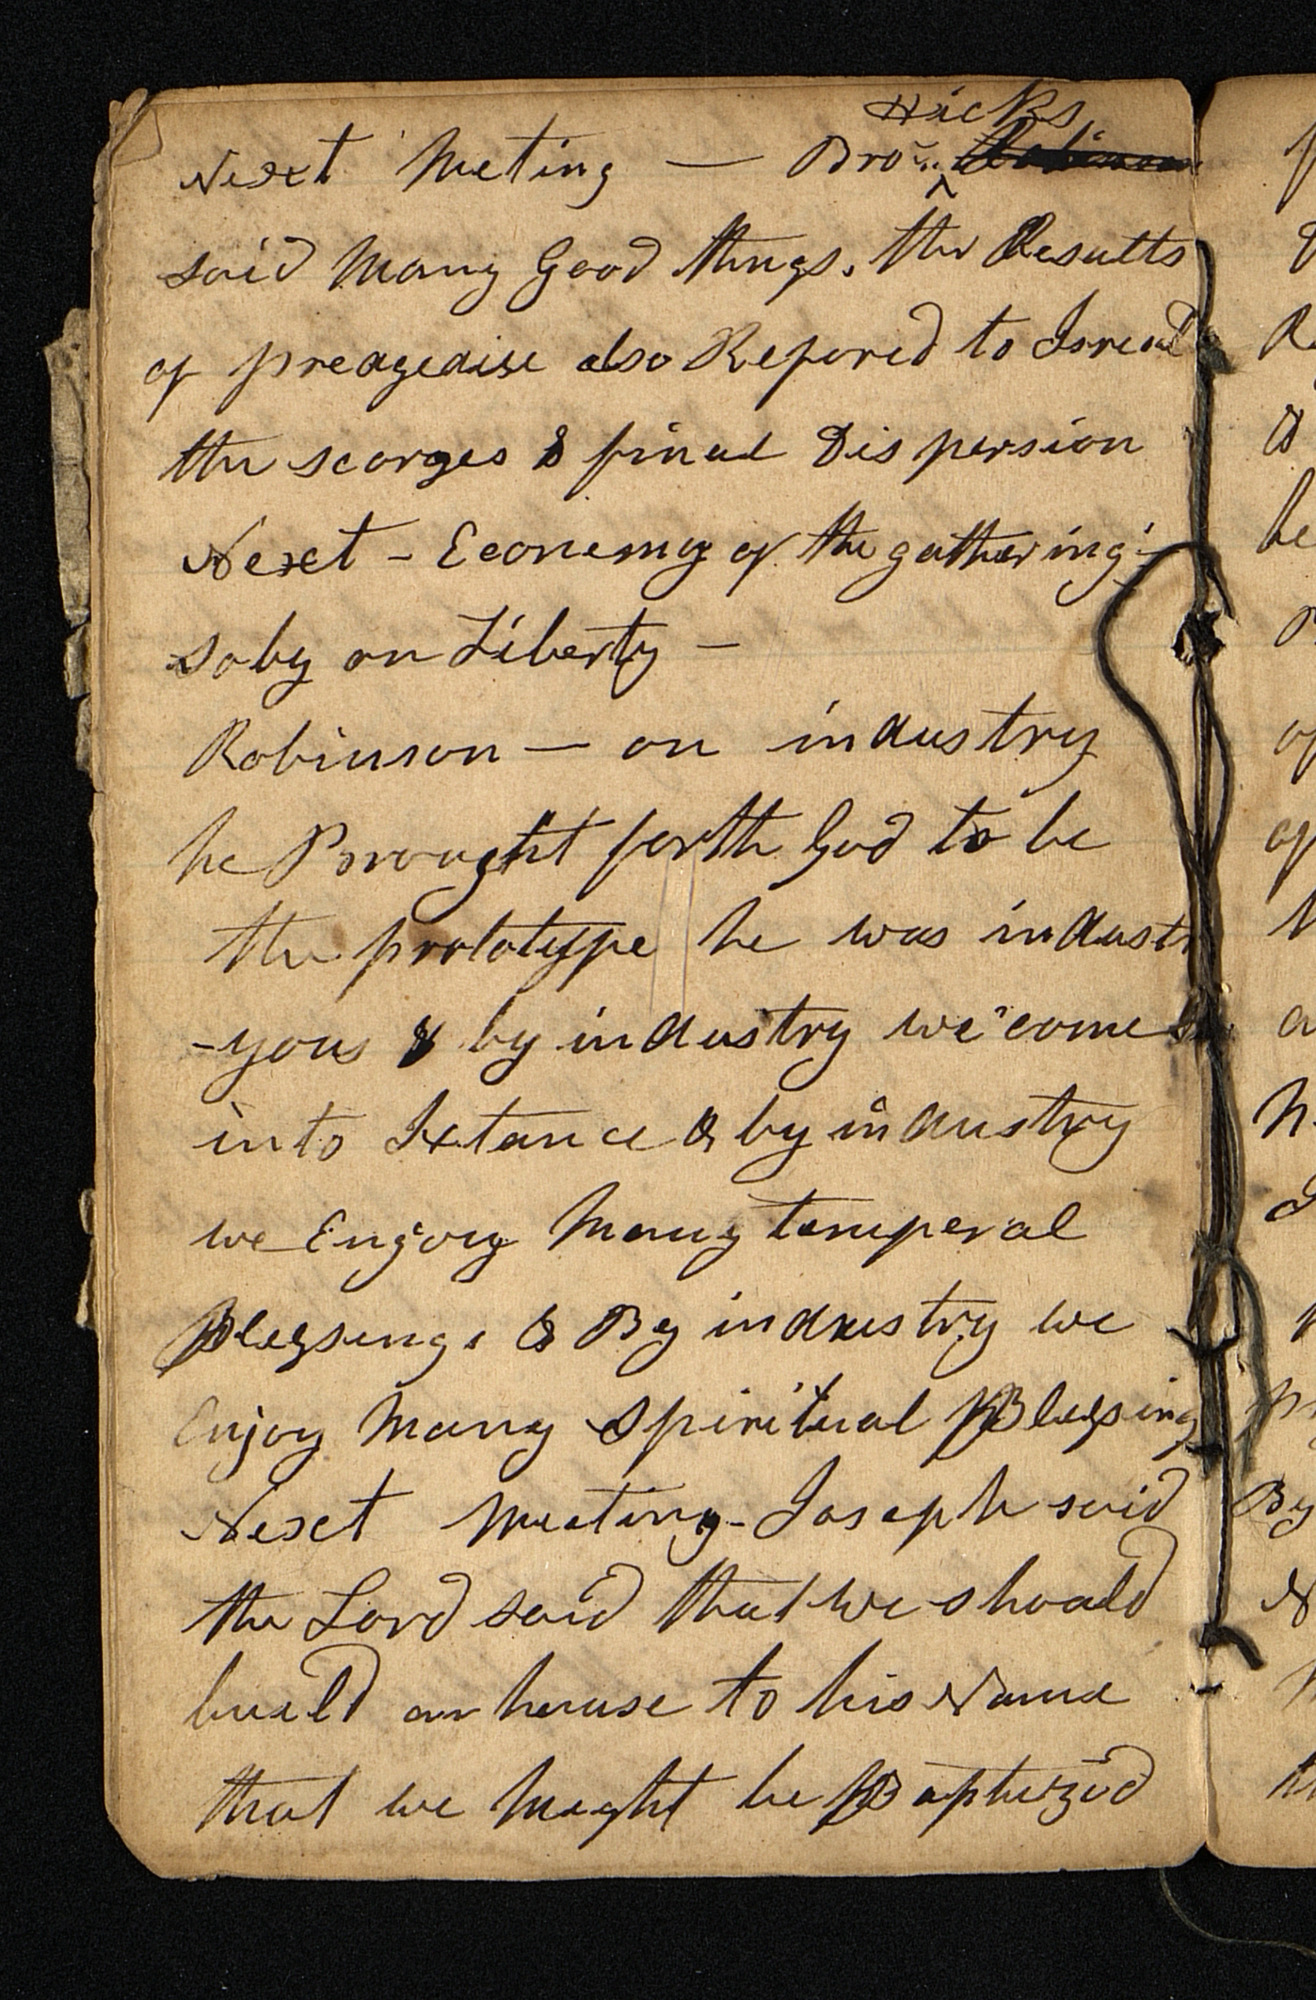 Hicks
Next Meting — Bro. Robinson
said Many Good things. the Results
of preagedise also Refored to Isreal
the scorges & final Dispersion
Next - Economy of the gathering -
Soby on Liberty -
Robinson — on industry
he Brought forth God to be
the prototype he was industr
-yous & by industry we come
into Ixtance & by industry
we Enjoy Many temperal
Blessings & By industry we
Enjoy Many Spiritual Blessing
Next Meeting - Joseph said
the Lord said that we should
build an house to his Name
that we might be Baptized